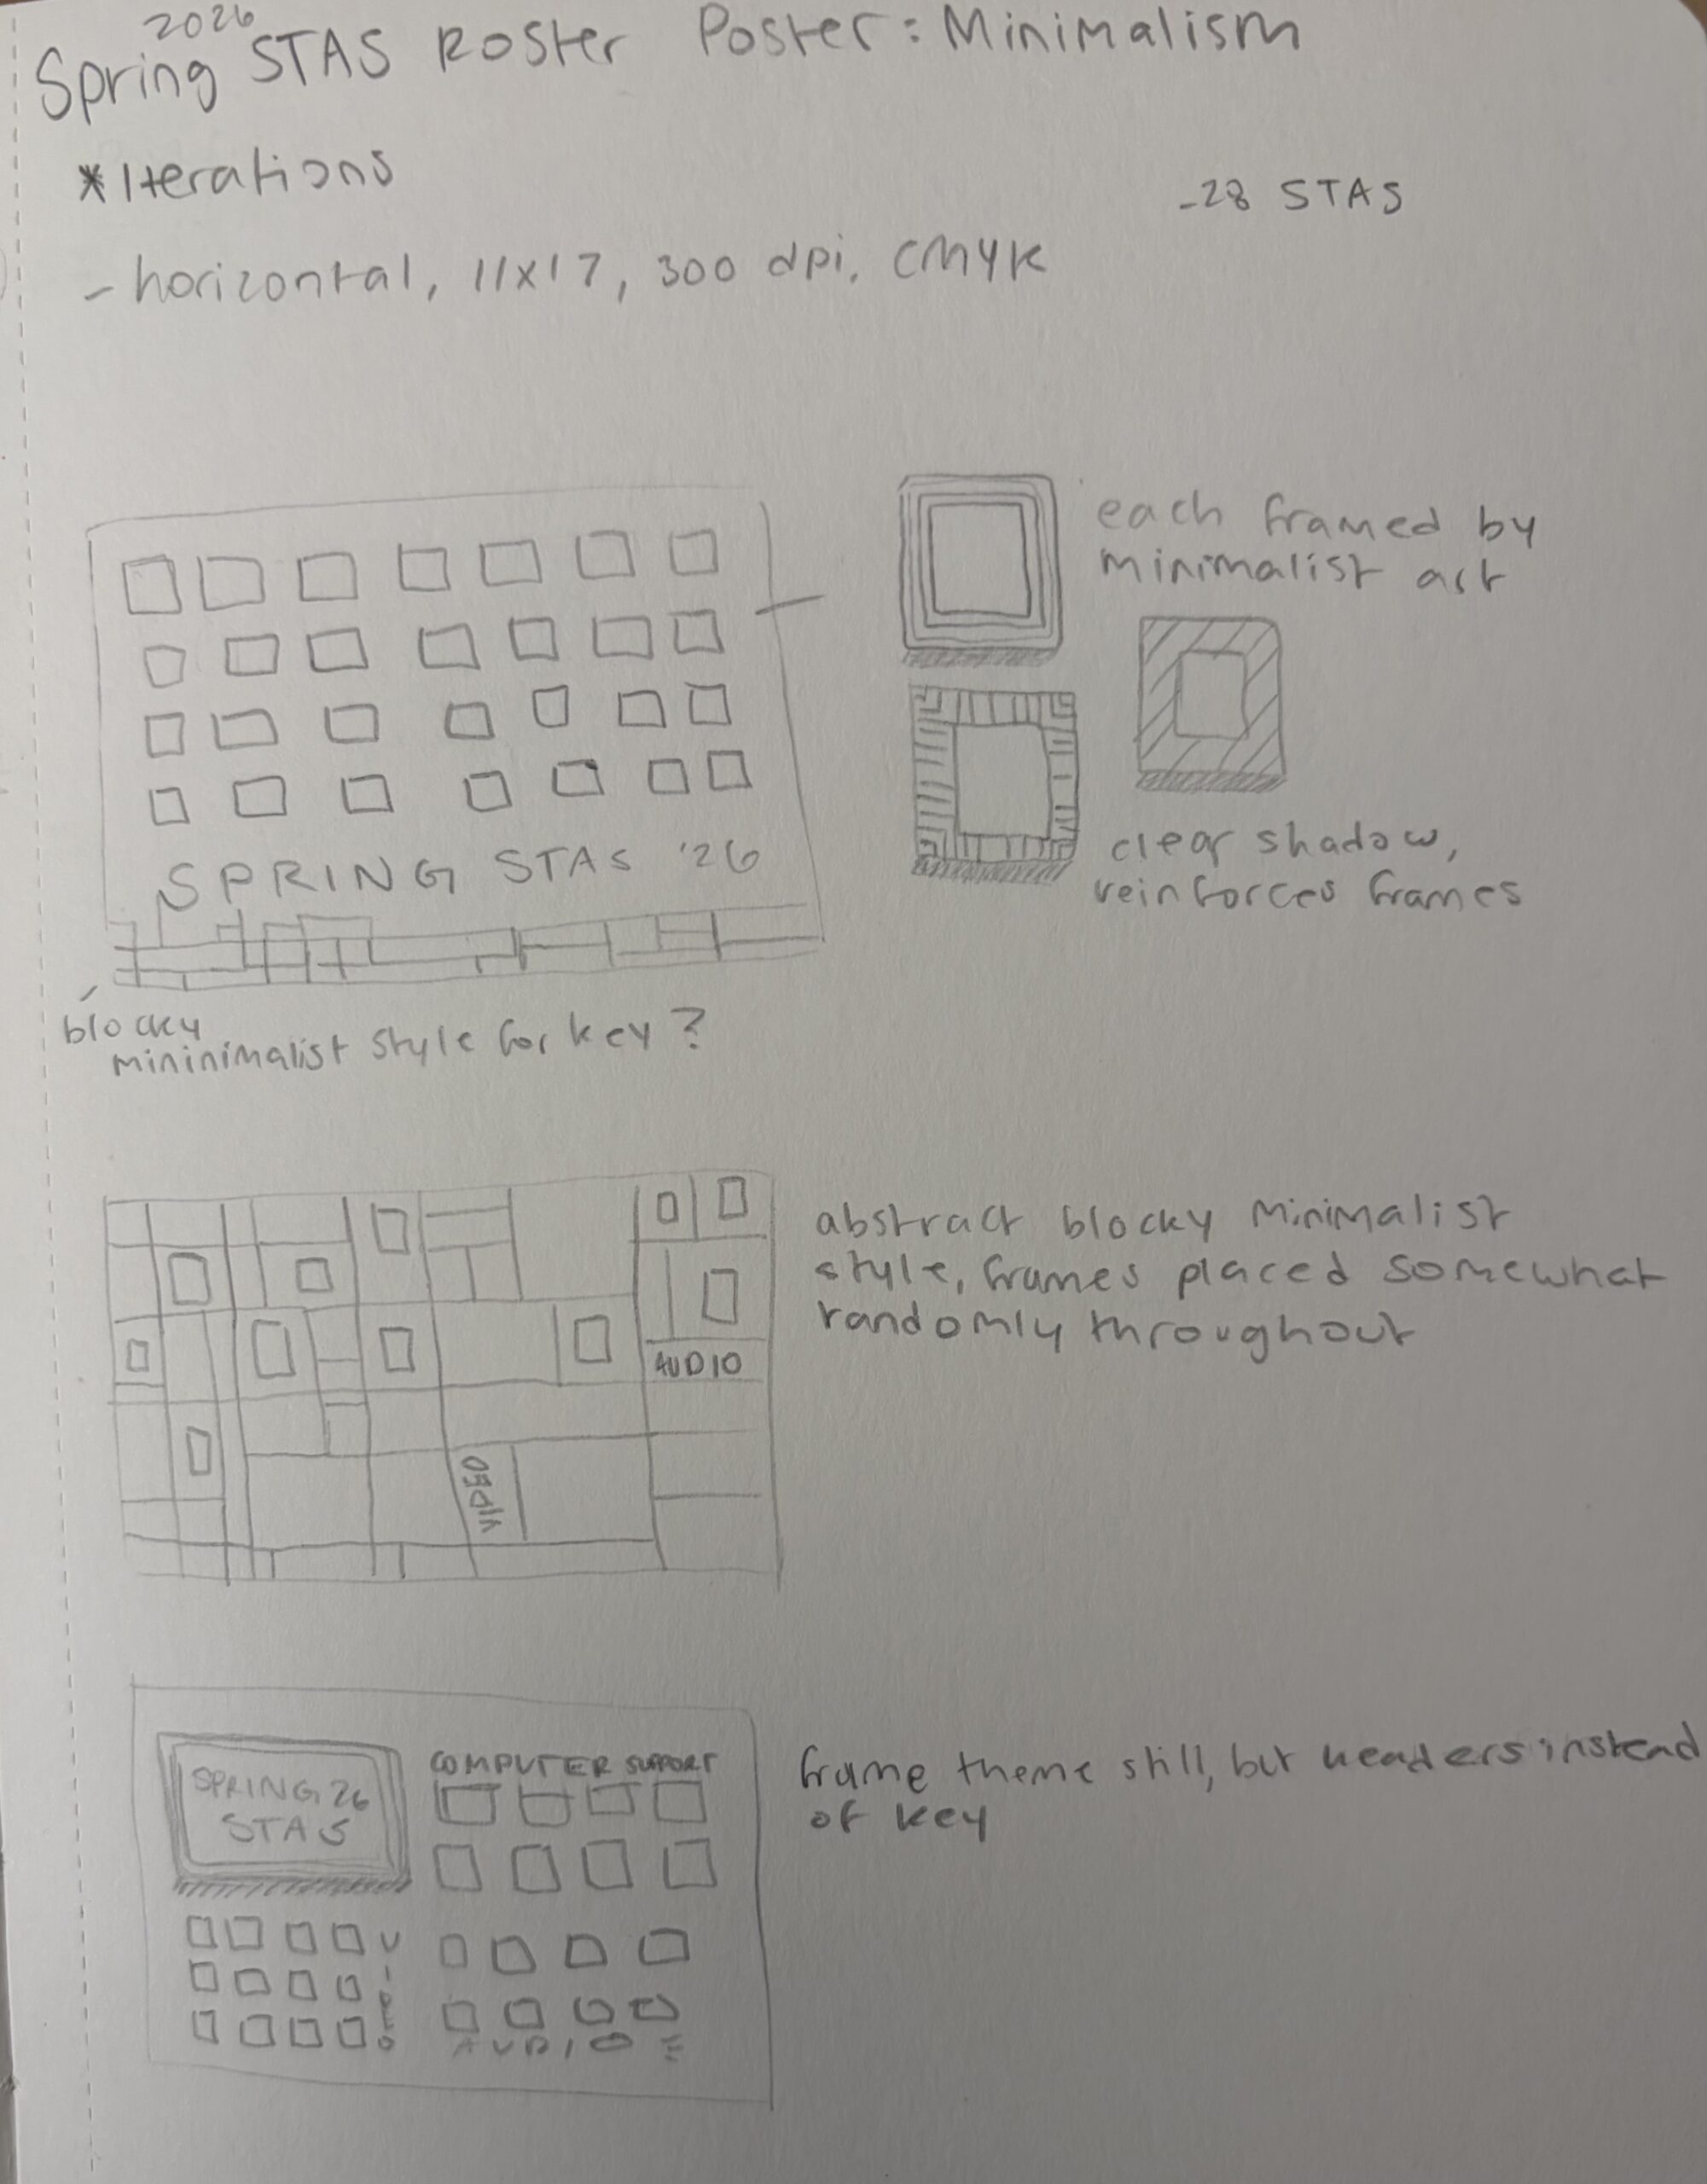 2026
Spring STAS Roster Poster: Minimalism
*Iterations
-28 STAS
- horizontal, 11x17, 300 dpi, CMYK
each framed by
minimalist art
clear shadow,
reinforces frames
SPRING STAS '26
blocky
mininimalist style for key?
abstract blocky minimalist
style, frames placed somewhat
randomly throughout
AUDIO
VIDEO
SPRING 26
STAS
COMPUTER SUPPORT
frame theme still, but headers instead
of key
VIDEO
AUDIO